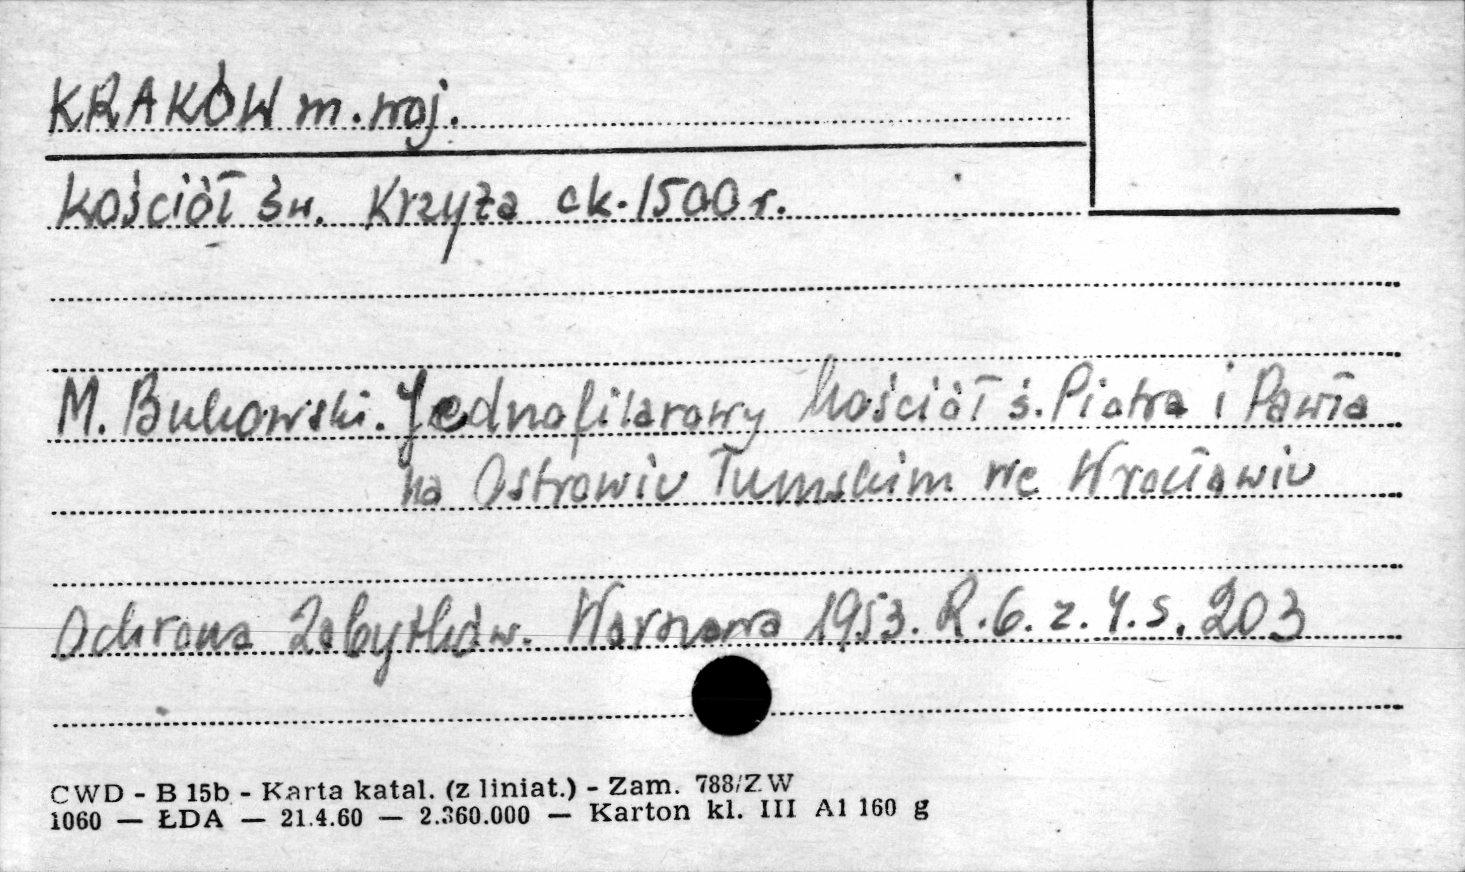 KRAKÓW m. woj.
kościół św. Krzyża ok. 1500 r.
M. Bukowski. Jednofilarowy kościół ś. Piotra i Pawła
na Ostrowiu Tumskim we Wrocławiu
Ochrona Zabytków. Warszawa 1953. R. 6. z. 4. s. 203
CWD - B 15b - Karta katal. (z liniat.) - Zam. 788/ZW
1060 — ŁDA — 21.4.60 — 2.360.000 — Karton kl. III A1 160 g